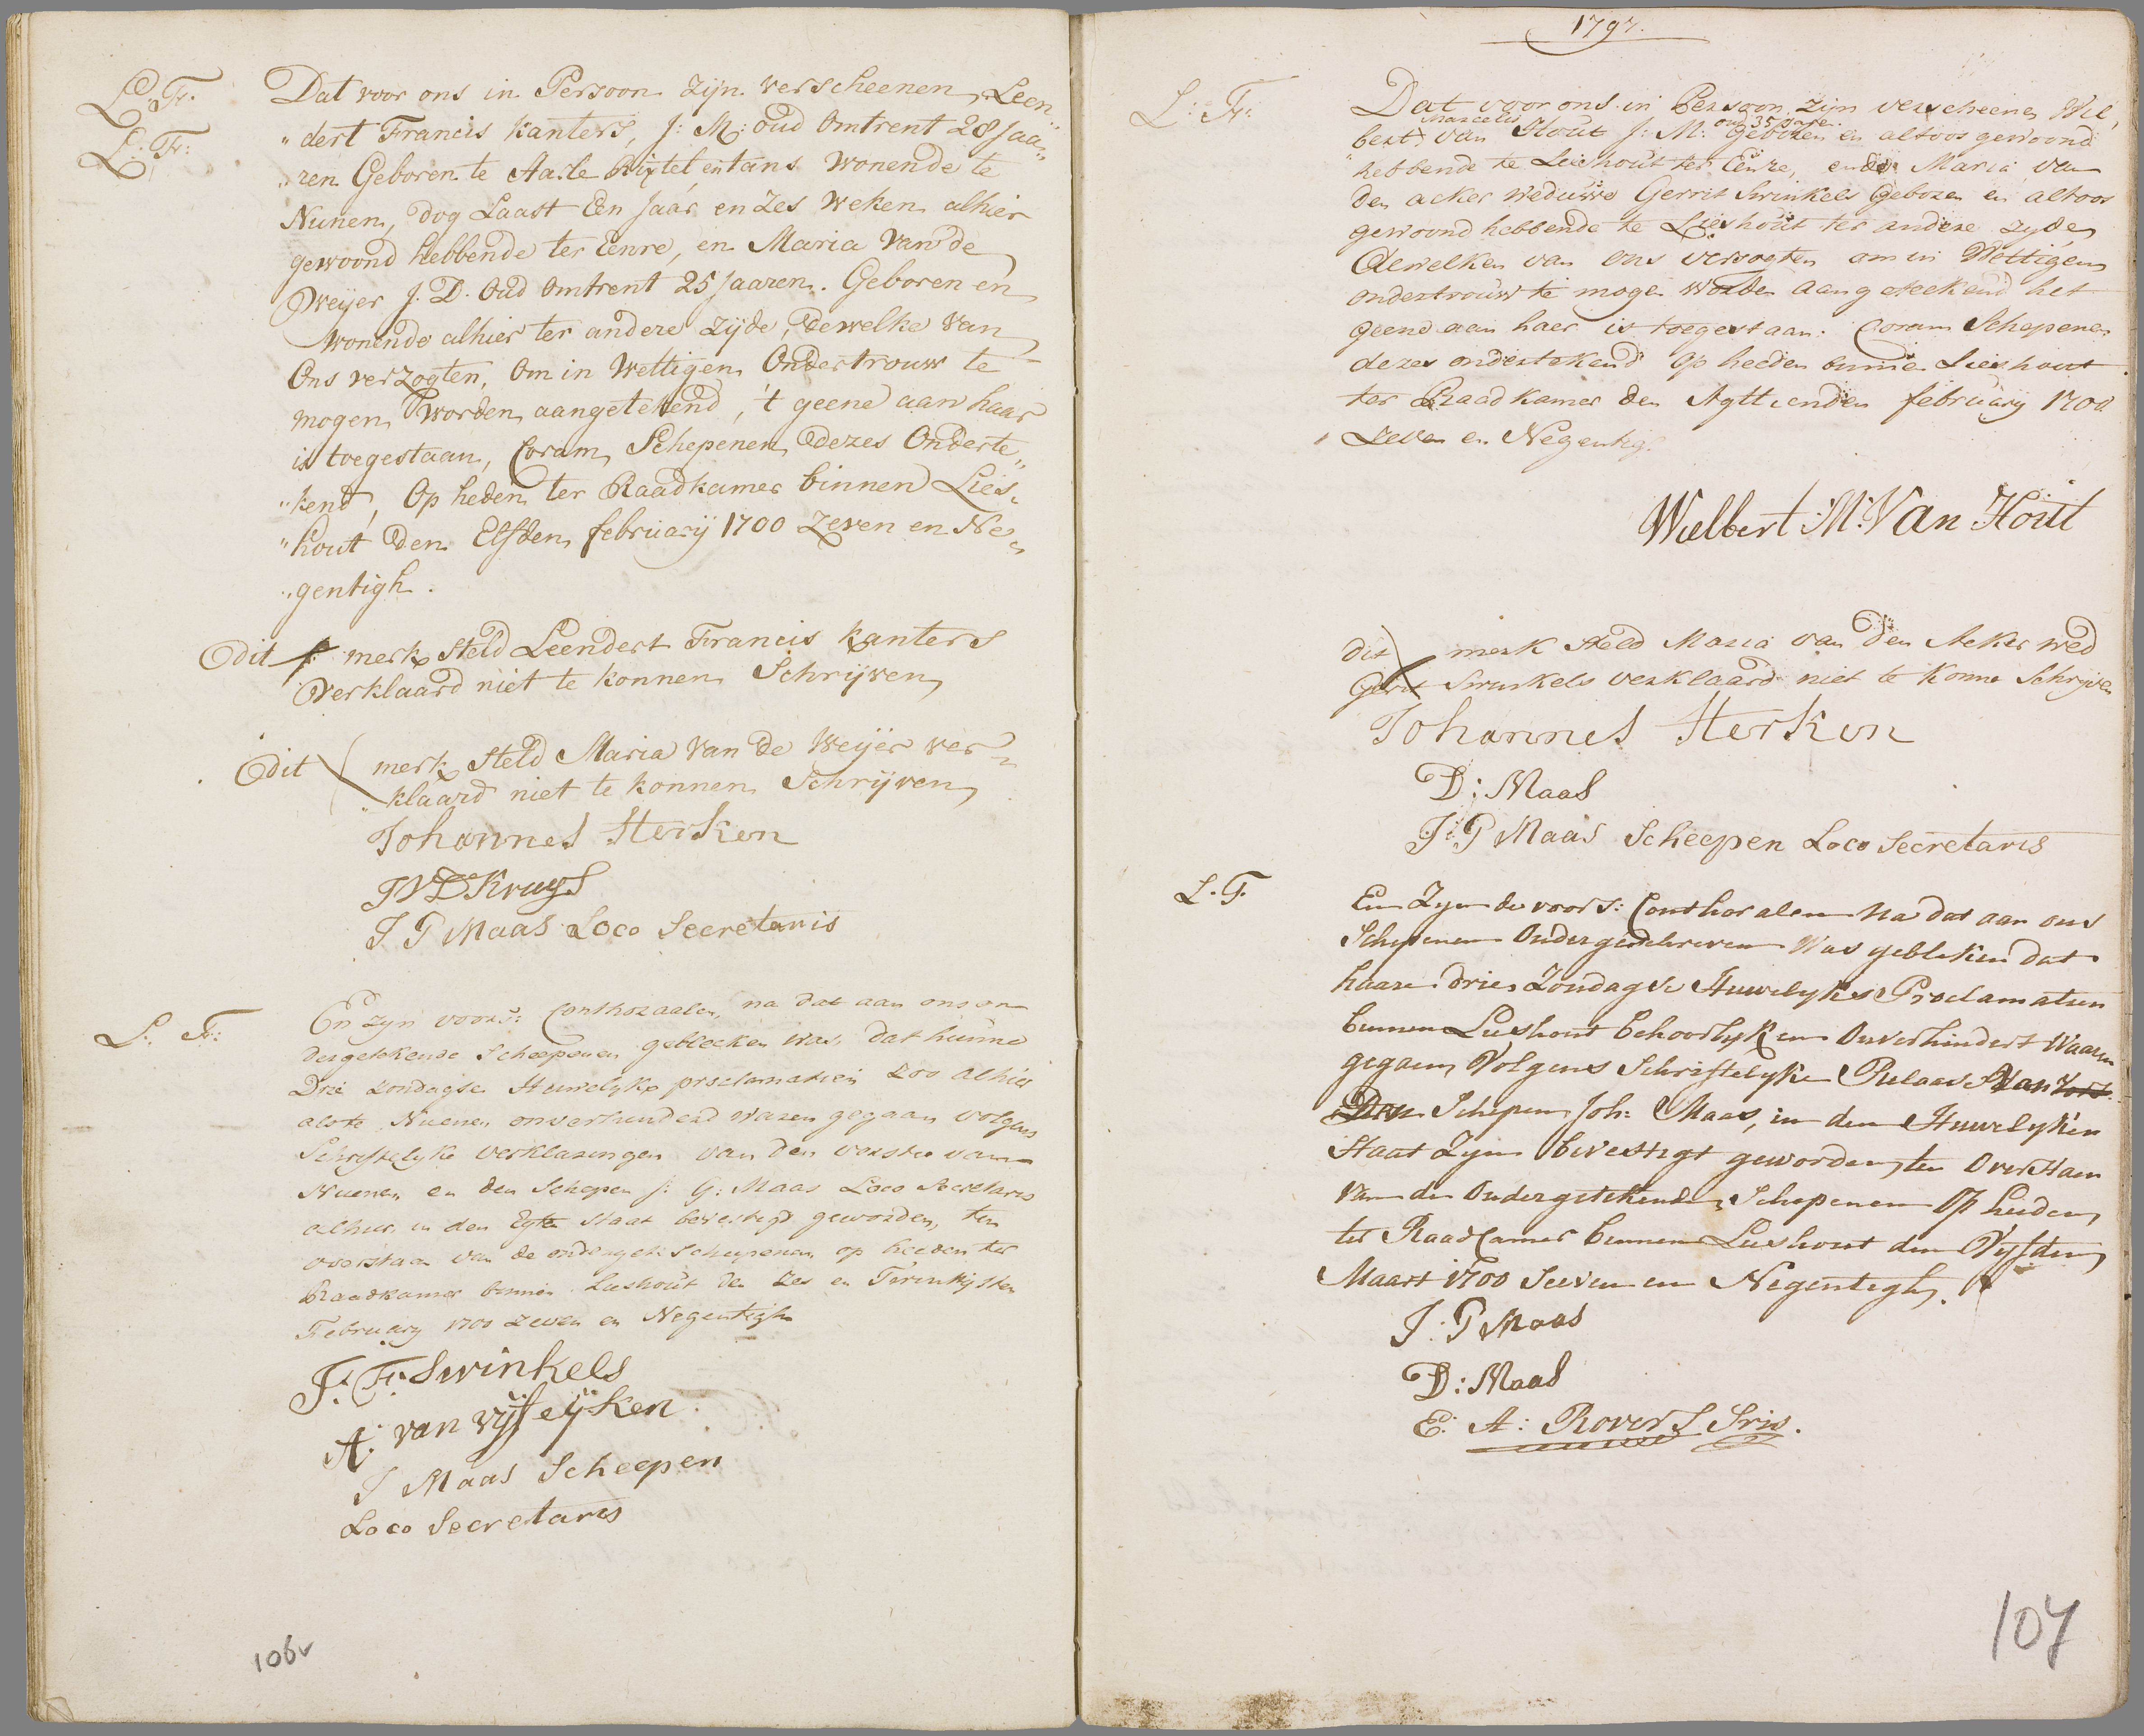 L: Fr:
L: Fr:
Dat voor ons in Persoon zijn verscheenen, Leen„
„dert Francis kanters, J: M: oud Omtrent 28 Jaa„
„ren Geboren te Aarle Rixtel en tans Wonende te
Nunen, dog Laast Een Jaar en Zes Weken alhier
gewoond hebbende ter Eenre, en Maria Van de
Weijer J. D. Oud Omtrent 25 Jaaren. Geboren en
Wonende alhier ter andere Zijde, dewelke Van
Ons verzogten, Om in Wettigen Ondertrouw te
mogen Worden aangetekend, 't geene aan haar
is toegestaan, Coram Schepenen dezes Onderte„
„kend, Op heden ter Raadkamer binnen Lies„
„hout den Elfden februarij 1700 Zeven en Ne„
„gentigh.
Dit merk Steld Leendert Francis kanters
Verklaard niet te konnen Schrijven
Dit merk Steld Maria Van de Weijer ver„
„klaard niet te konnen Schrijven
Johannes Sterken
J V D Kruys
J P Maas Loco Secretaris
L: Fr:
En zyn voors: Conthoraalen, na dat aan ons on
dergetekende Scheepenen gebleeken was, dat hunne
Drie zondagse Huwelyks proclamatien zoo alhier
als te Nuenen onverhinderd waren gegaan volgens
Schriftelyke verklaringen van den vorster van
Nuenen en den Schepen J: G: Maas Loco Secretaris
alhier in den Egte Staat bevestigd geworden, ten
overstaan van de ondergete: Scheepenen op heeden ter
Raadkamer binnen Lieshout den Zes en Twintigsten
February 1700 zeven en Negentigh
J: F: Swinkels
A: van vijfeijken
J Maas Scheepen
Loco Secretaris
106v
1797.
L: Fr:
Dat voor ons in Persoon zijn verscheenen Wil,
Marcelis oud 35 jare
bert van Hout J: M: Geboren en altoos gewoond
hebbende te Lieshout ter Eenre, ende Maria van
den acker Weduwe Gerrit Swinkels Geboren en altoos
gewoond hebbende te Lieshout ter andere zyde
Dewelken van ons verzogten om in Wettigen
ondertrouw te mogen worden aangeteekend het
geend aan haer is toegestaan. Coram Schepenen
dezes onderteekend Op heeden binnen Lieshout
ter Raadkamer den Agttienden februarij 1700
Zeven en Negentig
Wielbert M: Van Hout
dit merk steld Maria van den Acker wed
Gerit Swinkels verklaard niet te konne Schryven
Johannes Sterken
D: Maas
J: P Maas Scheepen Loco Secretaris
L. F.
En Zyn de voors: Conthoralen na dat aan ons
Schepenen Ondergeschreven Was gebleken dat
haare drie Zondagse Huwelykse Proclamatien
binnen Lieshout behoorlyk en Onverhindert Waaren
gegaen, Volgens Schriftelyke Relaas Van
Den Schepen Joh: Maas, in den Huwelyken
Staat Zyn bevestigt geworden, ten Overstaen
Van de Ondergetekende Schepenen Op heiden
ter Raad Camer binnen Lieshout den Vyfden
Maart 1700 Seeven en Negentigh.
J: P Maas
D: Maas
E: A: Rovers Sris.
107